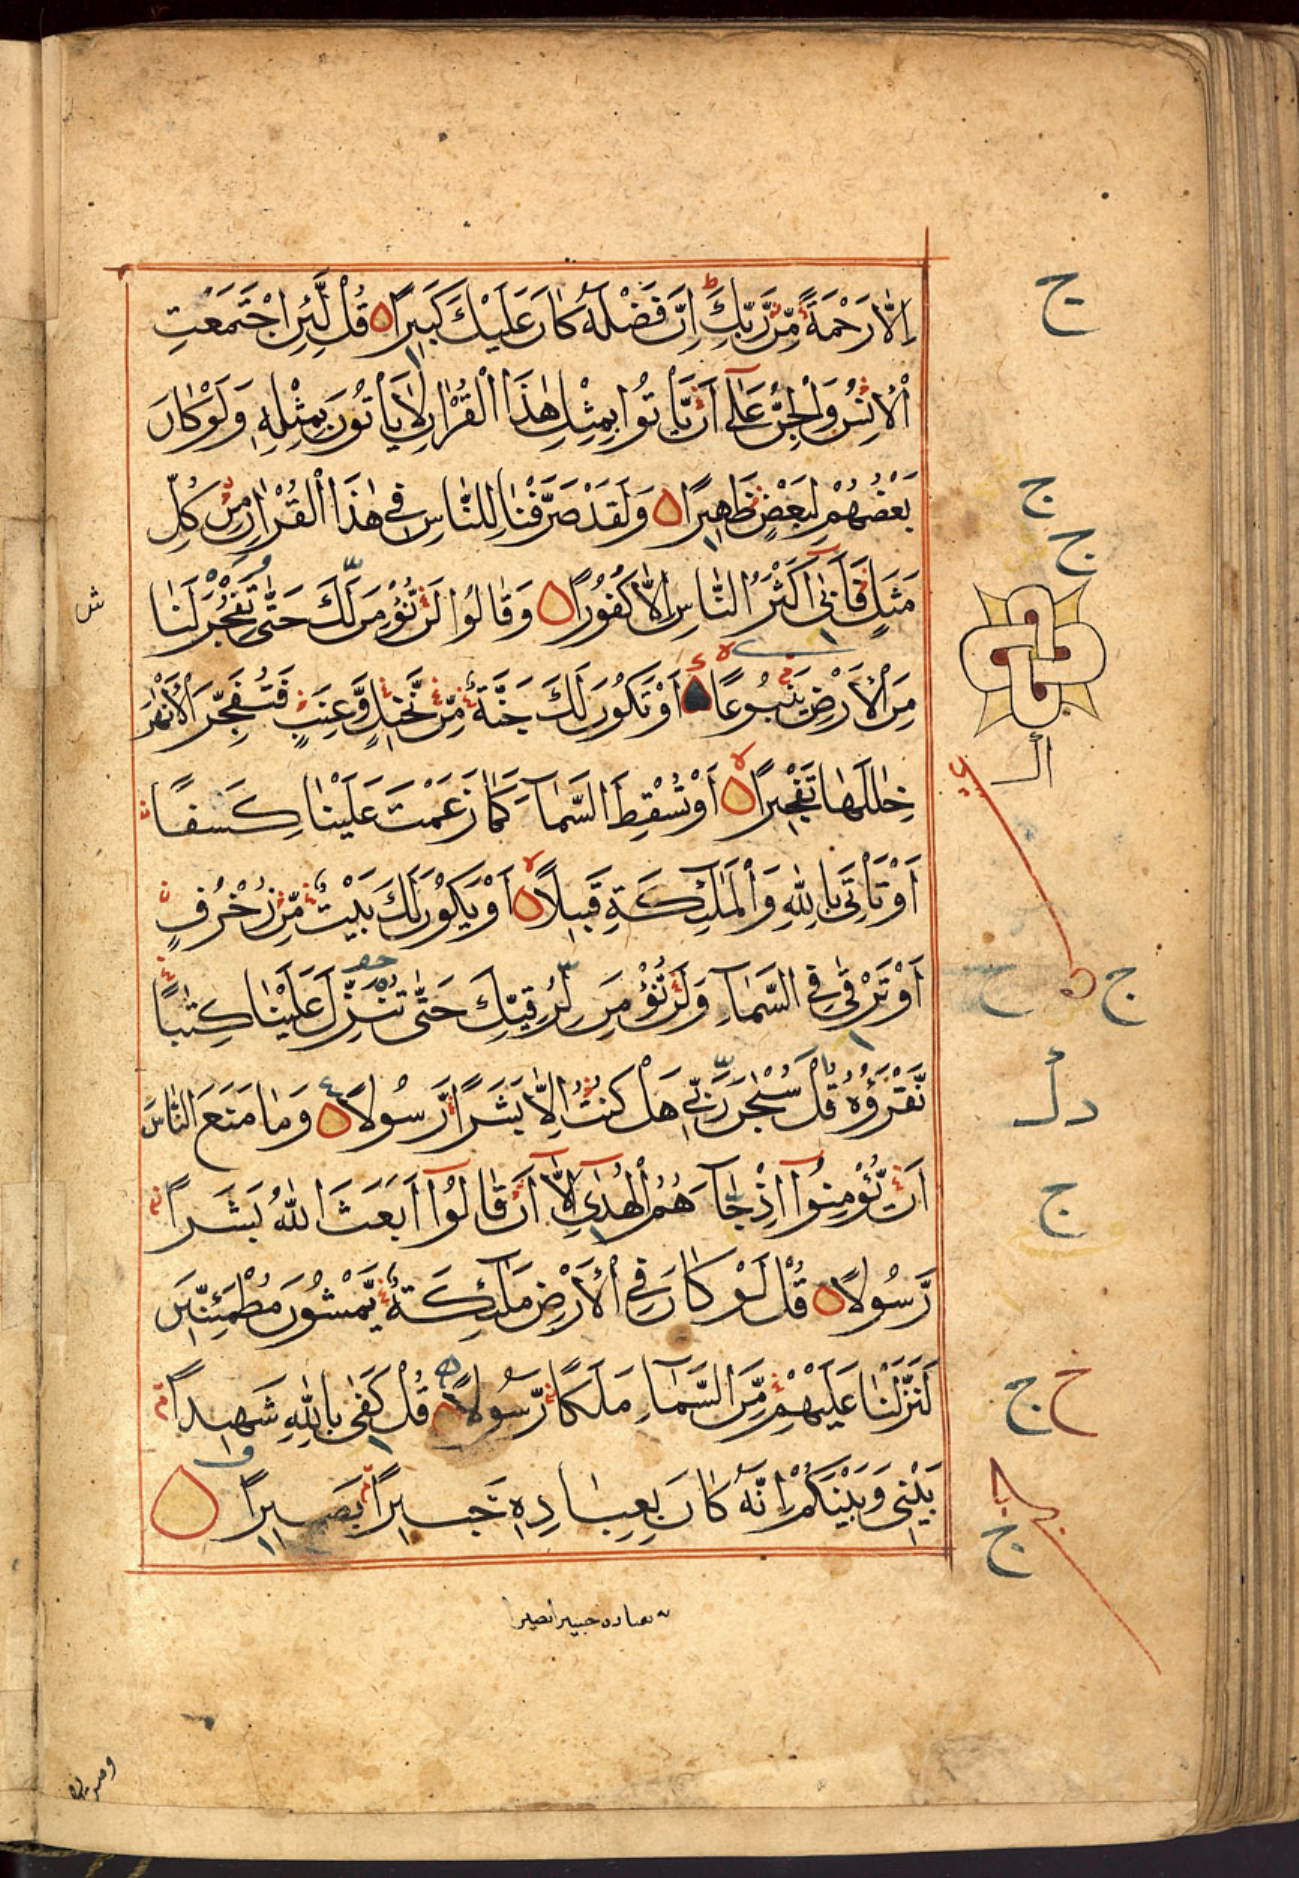 اِلَّا رَحْمَةً مِّنْ رَّبِّكَ اِنَّ فَضْلَهٗ كَانَ عَلَيْكَ كَبِيْرًا قُلْ لَّئِنِ اجْتَمَعَتِ
الْاِنْسُ وَالْجِنُّ عَلٰٓى اَنْ يَّاْتُوْا بِمِثْلِ هٰذَا الْقُرْاٰنِ لَا يَاْتُوْنَ بِمِثْلِهٖ وَلَوْ كَانَ
بَعْضُهُمْ لِبَعْضٍ ظَهِيْرًا وَلَقَدْ صَرَّفْنَا لِلنَّاسِ فِيْ هٰذَا الْقُرْاٰنِ مِنْ كُلِّ
مَثَلٍ فَاَبٰٓى اَكْثَرُ النَّاسِ اِلَّا كُفُوْرًا وَقَالُوْا لَنْ نُّؤْمِنَ لَكَ حَتّٰى تَفْجُرَ لَنَا
مِنَ الْاَرْضِ يَنْبُوْعًا اَوْ تَكُوْنَ لَكَ جَنَّةٌ مِّنْ نَّخِيْلٍ وَّعِنَبٍ فَتُفَجِّرَ الْاَنْهٰرَ
خِلٰلَهَا تَفْجِيْرًا اَوْ تُسْقِطَ السَّمَآءَ كَمَا زَعَمْتَ عَلَيْنَا كِسَفًا
اَوْ تَاْتِيَ بِاللّٰهِ وَالْمَلٰٓئِكَةِ قَبِيْلًا اَوْ يَكُوْنَ لَكَ بَيْتٌ مِّنْ زُخْرُفٍ
اَوْ تَرْقٰى فِي السَّمَآءِ وَلَنْ نُّؤْمِنَ لِرُقِيِّكَ حَتّٰى تُنَزِّلَ عَلَيْنَا كِتٰبًا
نَّقْرَؤُهٗ قُلْ سُبْحٰنَ رَبِّيْ هَلْ كُنْتُ اِلَّا بَشَرًا رَّسُوْلًا وَمَا مَنَعَ النَّاسَ
اَنْ يُّؤْمِنُوْٓا اِذْ جَآءَهُمُ الْهُدٰٓى اِلَّآ اَنْ قَالُوْٓا اَبَعَثَ اللّٰهُ بَشَرًا
رَّسُوْلًا قُلْ لَوْ كَانَ فِي الْاَرْضِ مَلٰٓئِكَةٌ يَّمْشُوْنَ مُطْمَئِنِّيْنَ
لَنَزَّلْنَا عَلَيْهِمْ مِّنَ السَّمَآءِ مَلَكًا رَّسُوْلًا قُلْ كَفٰى بِاللّٰهِ شَهِيْدًا
بَيْنِيْ وَبَيْنَكُمْ اِنَّهٗ كَانَ بِعِبَادِهٖ خَبِيْرًا بَصِيْرًا
بعباده خبيرا بصيرا
ج
ج
ج
ج
ج
خ ج
ج
ش